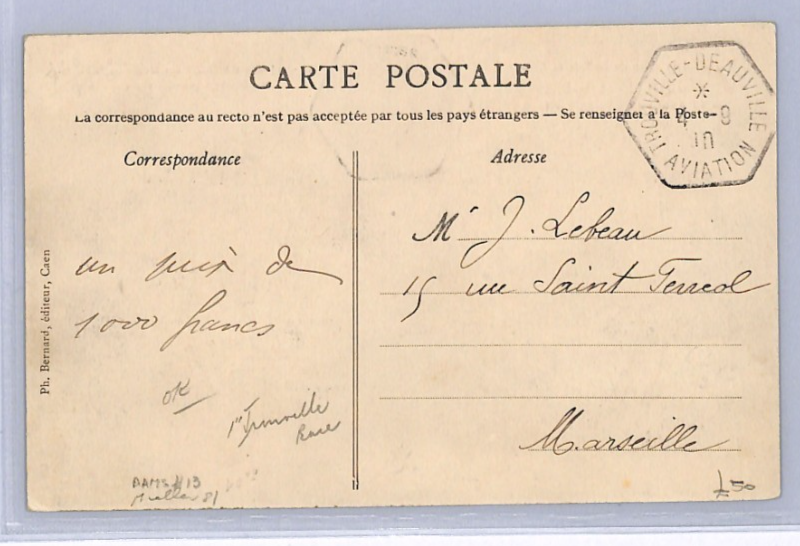 CARTE POSTALE
La correspondance au recto n'est pas acceptée par tous les pays étrangers — Se renseigner à la Poste
Correspondance
Adresse
TROUVILLE-DEAUVILLE
*
4 - 9
10
AVIATION
Mr J. Lebeau
15 rue Saint Ferréol
Marseille
un prix de
1000 francs
Ph. Bernard, éditeur, Caen
OK
1st Trouville
Race
DAMS #13
Muller 81
£50